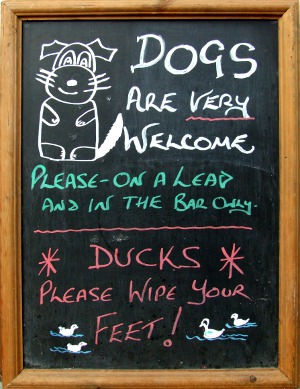 DOGS
ARE VERY
WELCOME
PLEASE-ON A LEAD
AND IN THE BAR ONLY.
* DUCKS *
PLEASE WIPE YOUR
FEET!